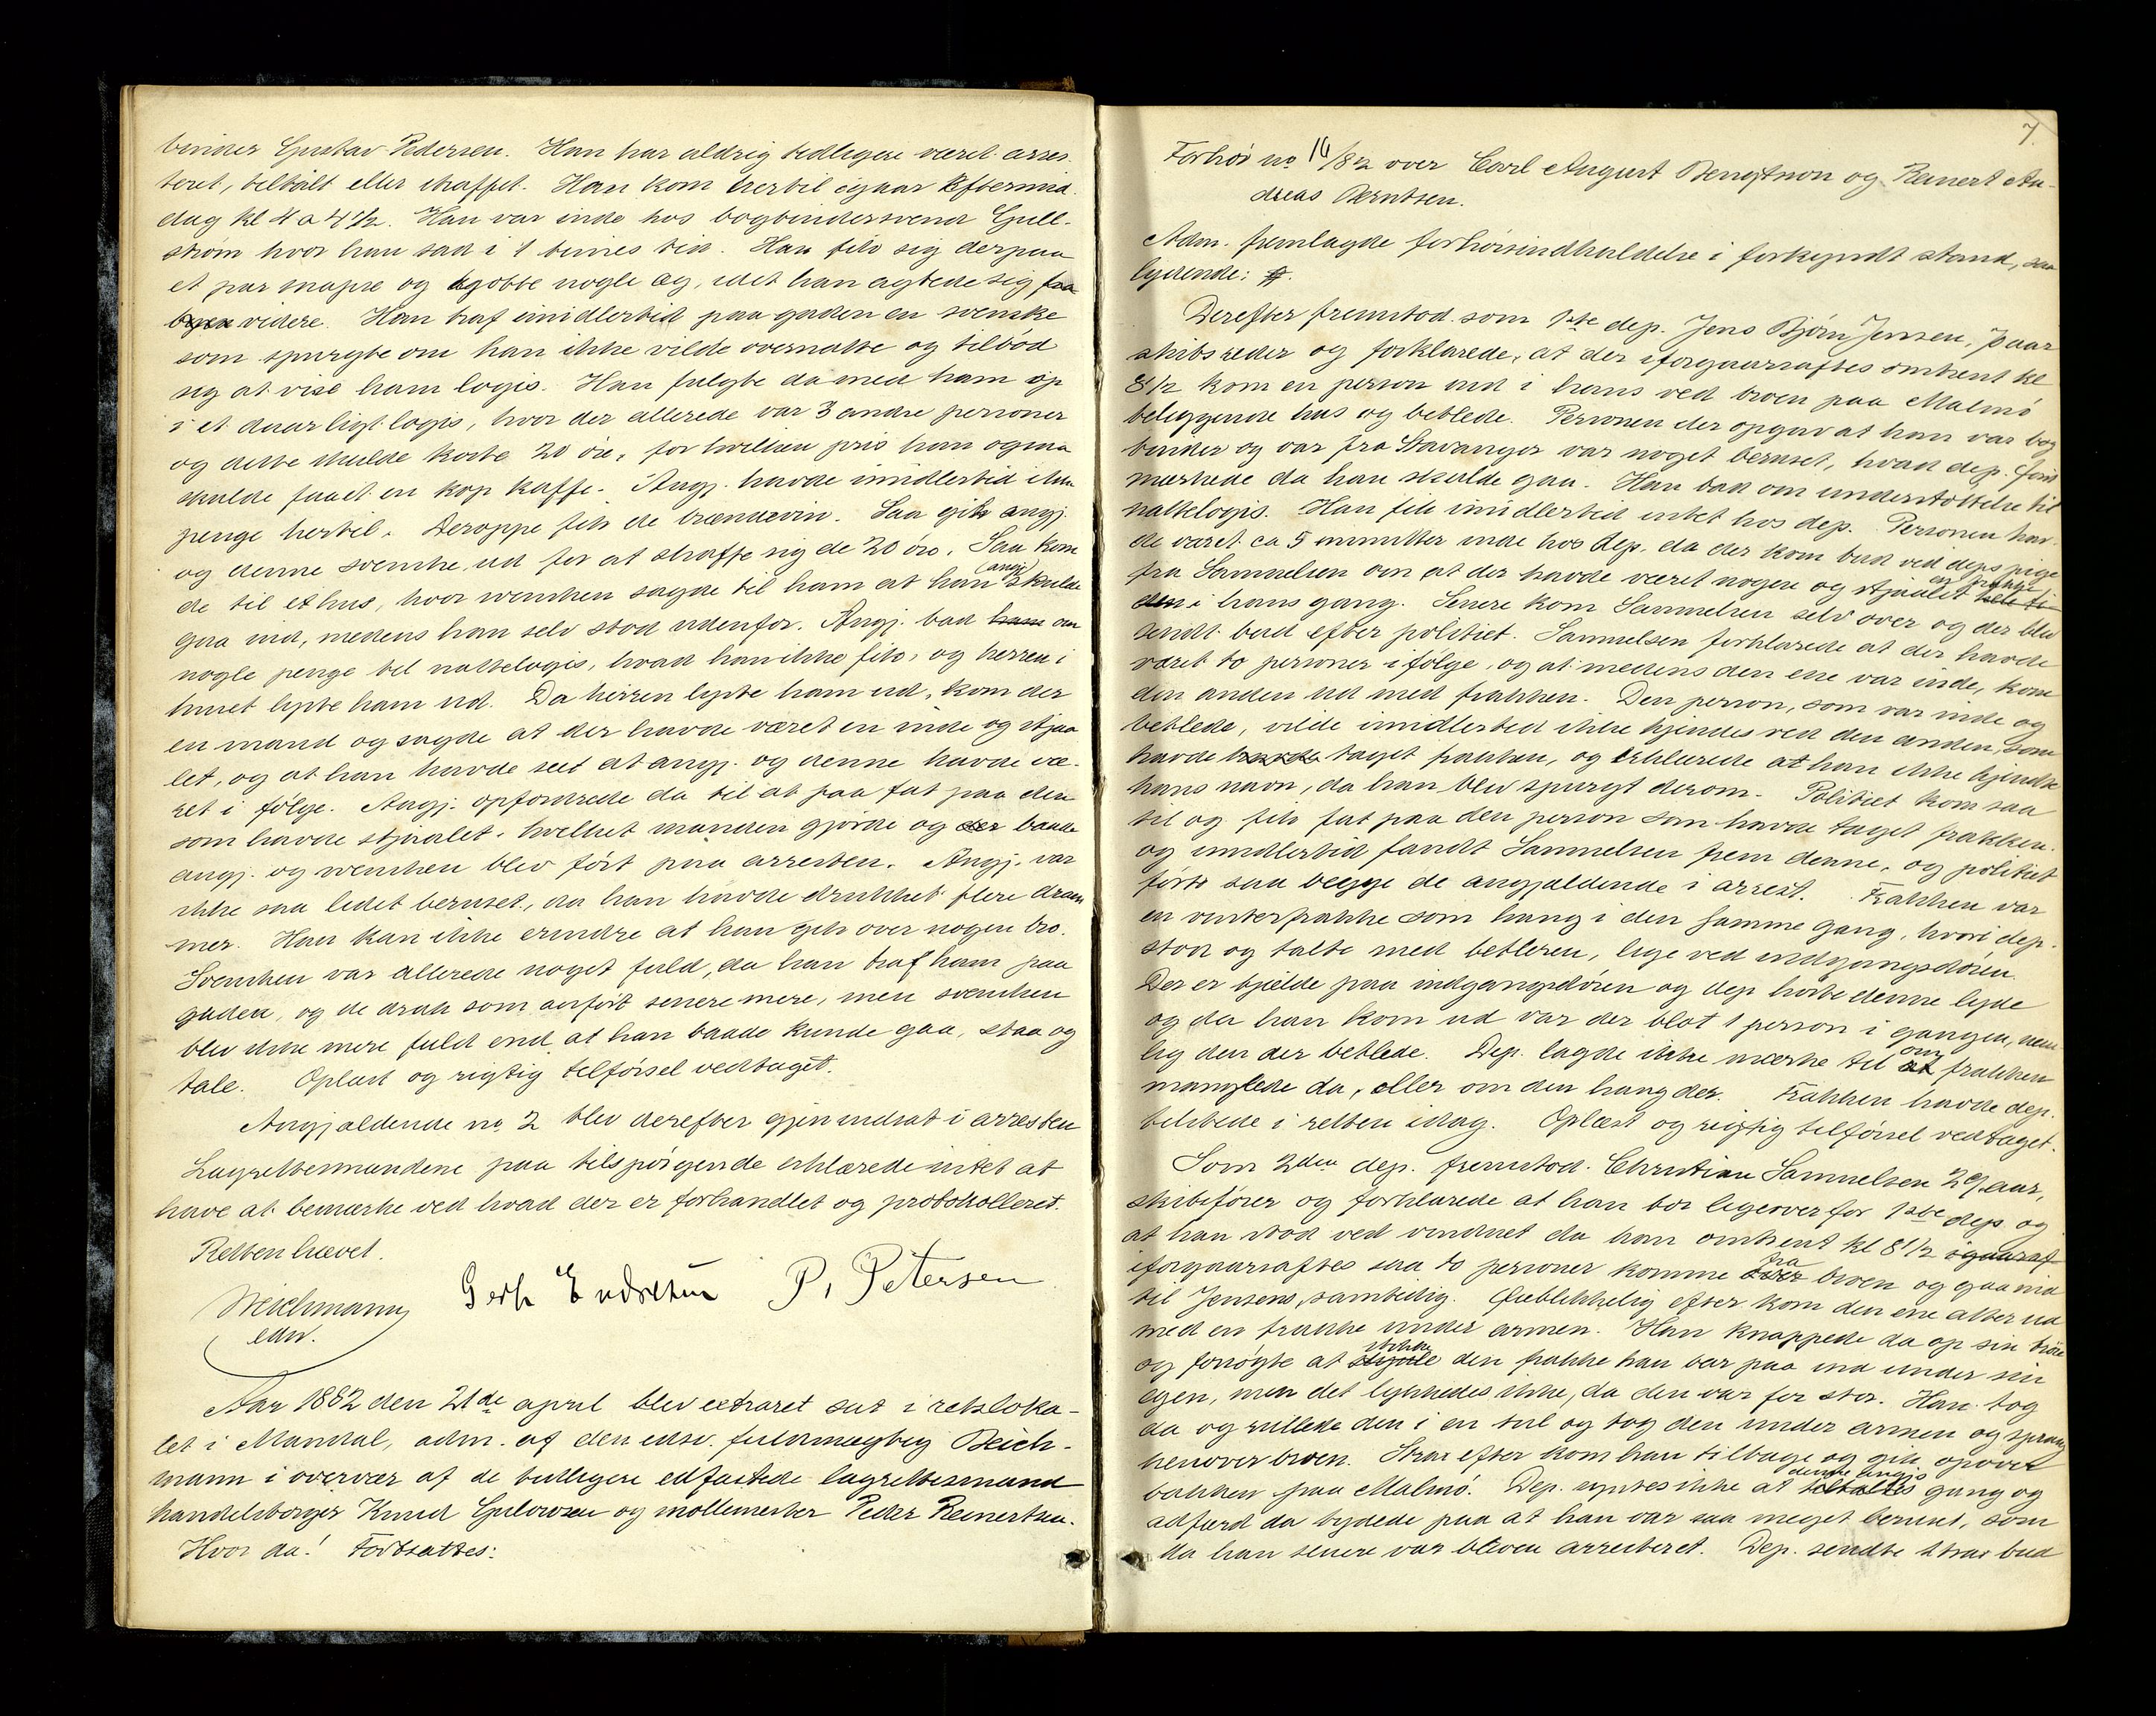 binder Gustav Pedersen. Han har aldrig tidligere været arres-
teret, tiltalt eller straffet. Han kom hertil igaar Eftermid-
dag kl 4 a 4½. Han var inde hos bogbindersvend Gull-
strøm hvor han sad i 1 times tid. Han fik sig derpaa
et par snapse og kjøbte nogle æg, idet han agtede sig fra
byen videre. Han traf imidlertid paa gaden en svenske
som spurgte om han ikke vilde overnatte og tilbød
sig at vise ham logis. Han fulgte da med ham op
i et daarligt logis, hvor der allerede var 3 andre personer
og dette skulde koste 20 øre, for hvilken pris han ogsaa
skulde faaet en kop kaffe. Angj. havde imidlertid ikke
penge hertil. Deroppe fik de brændevin. Saa gik angj.
og denne svenske ud for at skaffe sig de 20 øre. Saa kom
de til et hus, hvor svensken sagde til ham at han (angj) skulde
gaa ind, medens han selv stod udenfor. Angj. bad ham om
nogle penge til nattelogis, hvad han ikke fik, og herren i
huset lyste ham ud. Da herren lyste ham ud, kom der
en mand og sagde at der havde været en inde og stjaa-
let, og at han havde seet at angj. og denne havde væ-
ret i følge. Angj. opfordrede da til at faa fat paa den
som havde stjaalet, hvilket manden gjorde og der baade
angj. og svensken blev ført paa arresten. Angj. var
ikke saa lidet beruset, da han havde drukket flere dram-
mer. Han kan ikke erindre at han gik over nogen bro.
Svensken var allerede noget fuld, da han traf ham paa
gaden, og de drak som anført senere mere, men svensken
blev ikke mere fuld end at han baade kunde gaa, staa og
tale. Oplæst og rigtig tilførsel vedtaget.
Angjældende no 2 blev derefter gjenindsat i arresten
Lagrettesmændene paa tilspørgende erklærede intet at
have at bemærke ved hvad der er forhandlet og protokolleret.
Retten hævet.
Beichmann
edsv.
Gerh Endresen P. Petersen
Aar 1882 den 21de april blev extraret sat i retsloka-
let i Mandal, adm. af den edsv. fuldmægtig Beich-
mann i overvær af de tidligere edfæstede lagrettesmænd
handelsborger Knud Gulowsen og møllemester Peder Reinertsen.
Hvor da! Fortsattes:
7.
Forhør no 16/82 over Carl August Bengtson og Reinert An-
dreas Berntsen.
Adm. fremlagde forhørsindkaldelse i forkyndt stand, saa
lydende:
Derefter fremstod som 1ste dep. Jens Bjørn Jensen, aar
skibsreder og forklarede, at der iforgaarsaftes omtrent kl
8½ kom en person ind i hans ved broen paa Malmø
beliggende hus og betlede. Personen der opgav at han var bog-
binder og var fra Stavanger var noget beruset, hvad dep. først
mærkede da han skulde gaa. Han bad om understøttelse til
nattelogis. Han fik imidlertid intet hos dep. Personen hav-
de været ca 5 minutter inde hos dep. da der kom bud ved deps pige
fra Samuelsen om at der havde været nogen og stjaalet en frakke
i hans gang. Senere kom Samuelsen selv over og der blev
sendt bud efter politiet. Samuelsen forklarede at der havde
været to personer i følge, og at medens den ene var inde, kom
den anden ud med frakken. Den person, som var inde og
betlede, vilde imidlertid ikke kjendes ved den anden, som
havde havde taget frakken, og erklærede at han ikke kjendte
hans navn, da han blev spurgt derom. Politiet kom saa
til og fik fat paa den person som havde taget frakken.
og imidlertid fandt Samuelsen frem denne, og politiet
førte saa begge de angjældende i arrest. Frakken var
en vinterfrakke som hang i den samme gang, hvori dep.
stod og talte med betleren, lige ved indgangsdøren.
Der er bjelde paa indgangsdøren og dep hørte denne lyde
og da han kom ud var der blot 1 person i gangen, nem-
lig den der betlede. Dep. lagde ikke mærke til om frakken
manglede da, eller om den hang der. Frakken havde dep.
tilstede i retten idag. Oplæst og rigtig tilførsel vedtaget.
Som 2den dep. fremstod Christian Samuelsen 29 aar,
skibsfører og forklarede at han bor ligeoverfor 1ste dep og
at han stod ved vinduet da han omtrent kl 8½ igaaraf
iforgaarsaftes saa to personer komme fra broen og gaa ind
til Jensens, samtidig. Øieblikkelig efter kom den ene atter ud
med en frakke under armen. Han knappede da op sin trøie
og forsøgte at stikke den frakke han bar paa ind under sin
egen, men det lykkedes ikke, da den var for stor. Han tog
da og rullede den i en tul og tog den under armen og sprang
henover broen. Strax efter kom han tilbage og gik opover
bakken paa Malmø. Dep. syntes ikke at denne angjs gang og
adfærd da tydede paa at han var saa meget beruset, som
da han senere var bleven arresteret. Dep. sendte strax bud